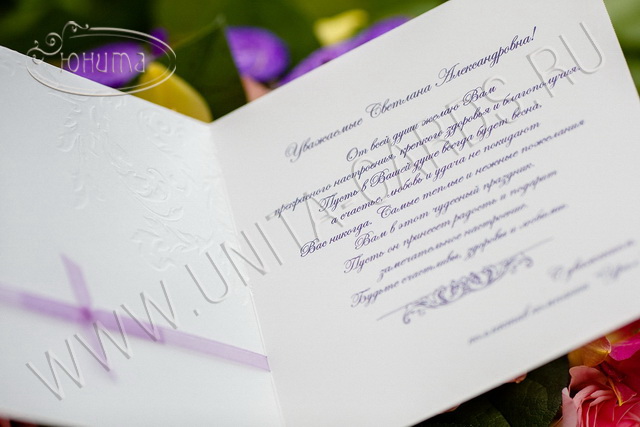 Юнита
Уважаемые Светлана Александровна!
От всей души желаю Вам
прекрасного настроения, крепкого здоровья и благополучия.
Пусть в Вашей душе всегда будет весна,
а счастье, любовь и удача не покидают
Вас никогда. Самые теплые и нежные пожелания
Вам в этот чудесный праздник.
Пусть он принесет радость и подарит
замечательное настроение.
Будьте счастливы, здоровы и любимы.
С уважением
коллектив компании
WWW.UNITA-CARDS.RU